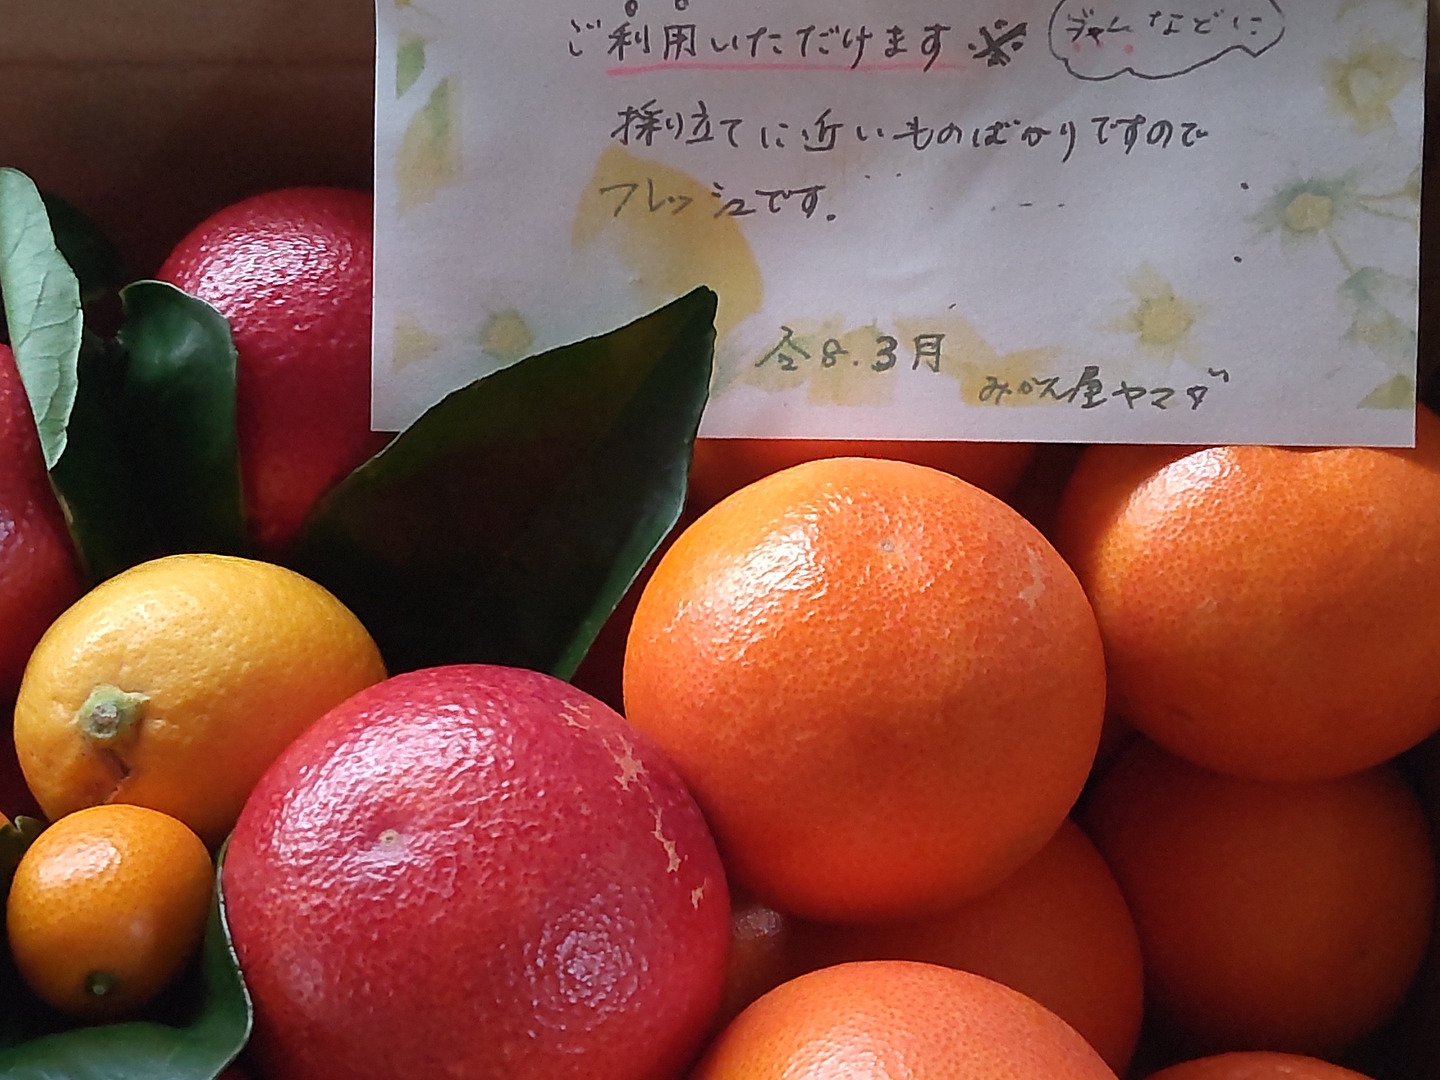 ご利用いただけます※
ジャムなどに
採り立てに近いものばかりですので
フレッシュです。
令8.3月
みかん屋ヤマダ